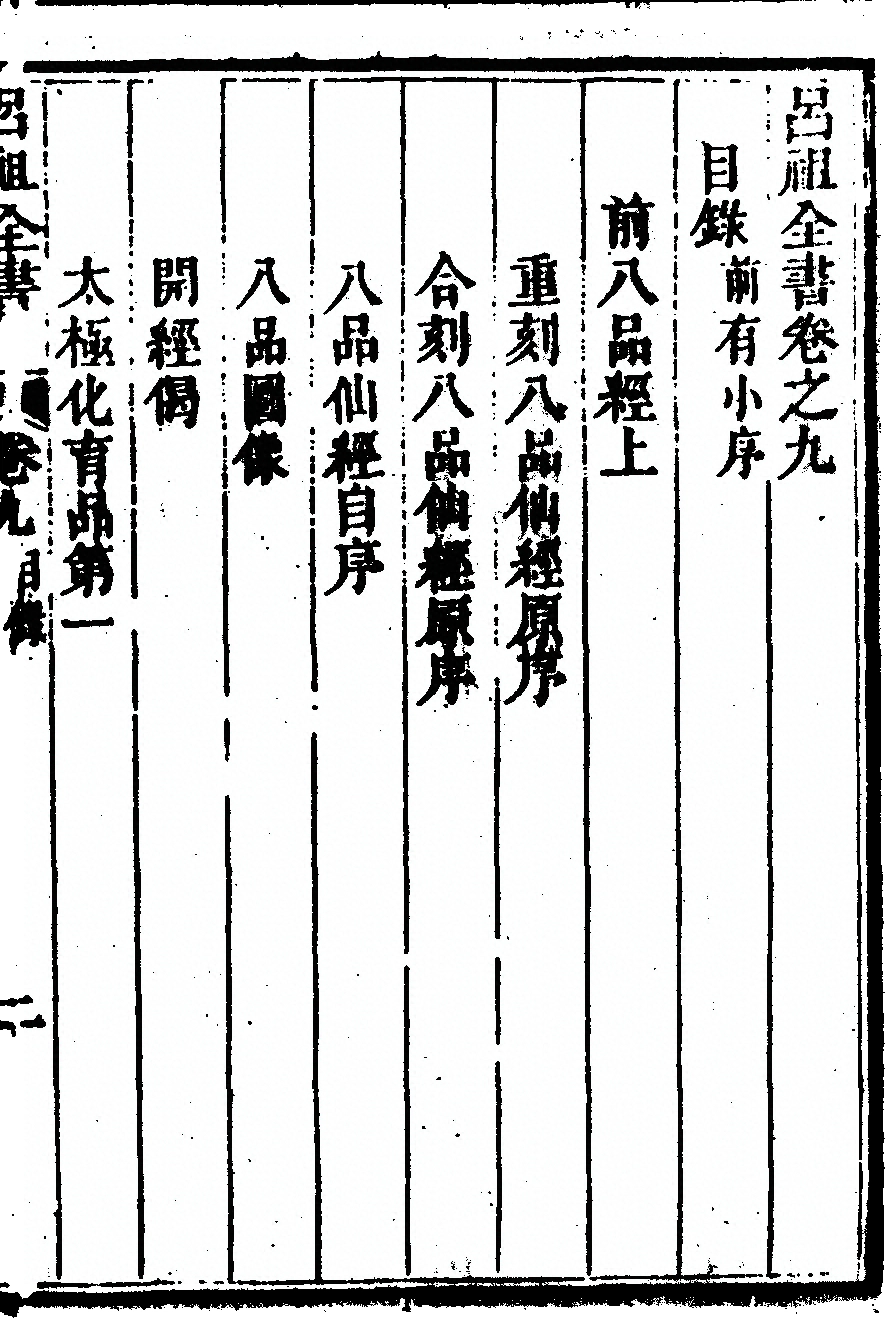 呂祖全書卷之九
目錄 前有小序
前八品經上
重刻八品仙經原序
合刻八品仙經原序
八品仙經自序
八品圖像
開經偈
太極化育品第一
呂祖全書 卷九 目錄